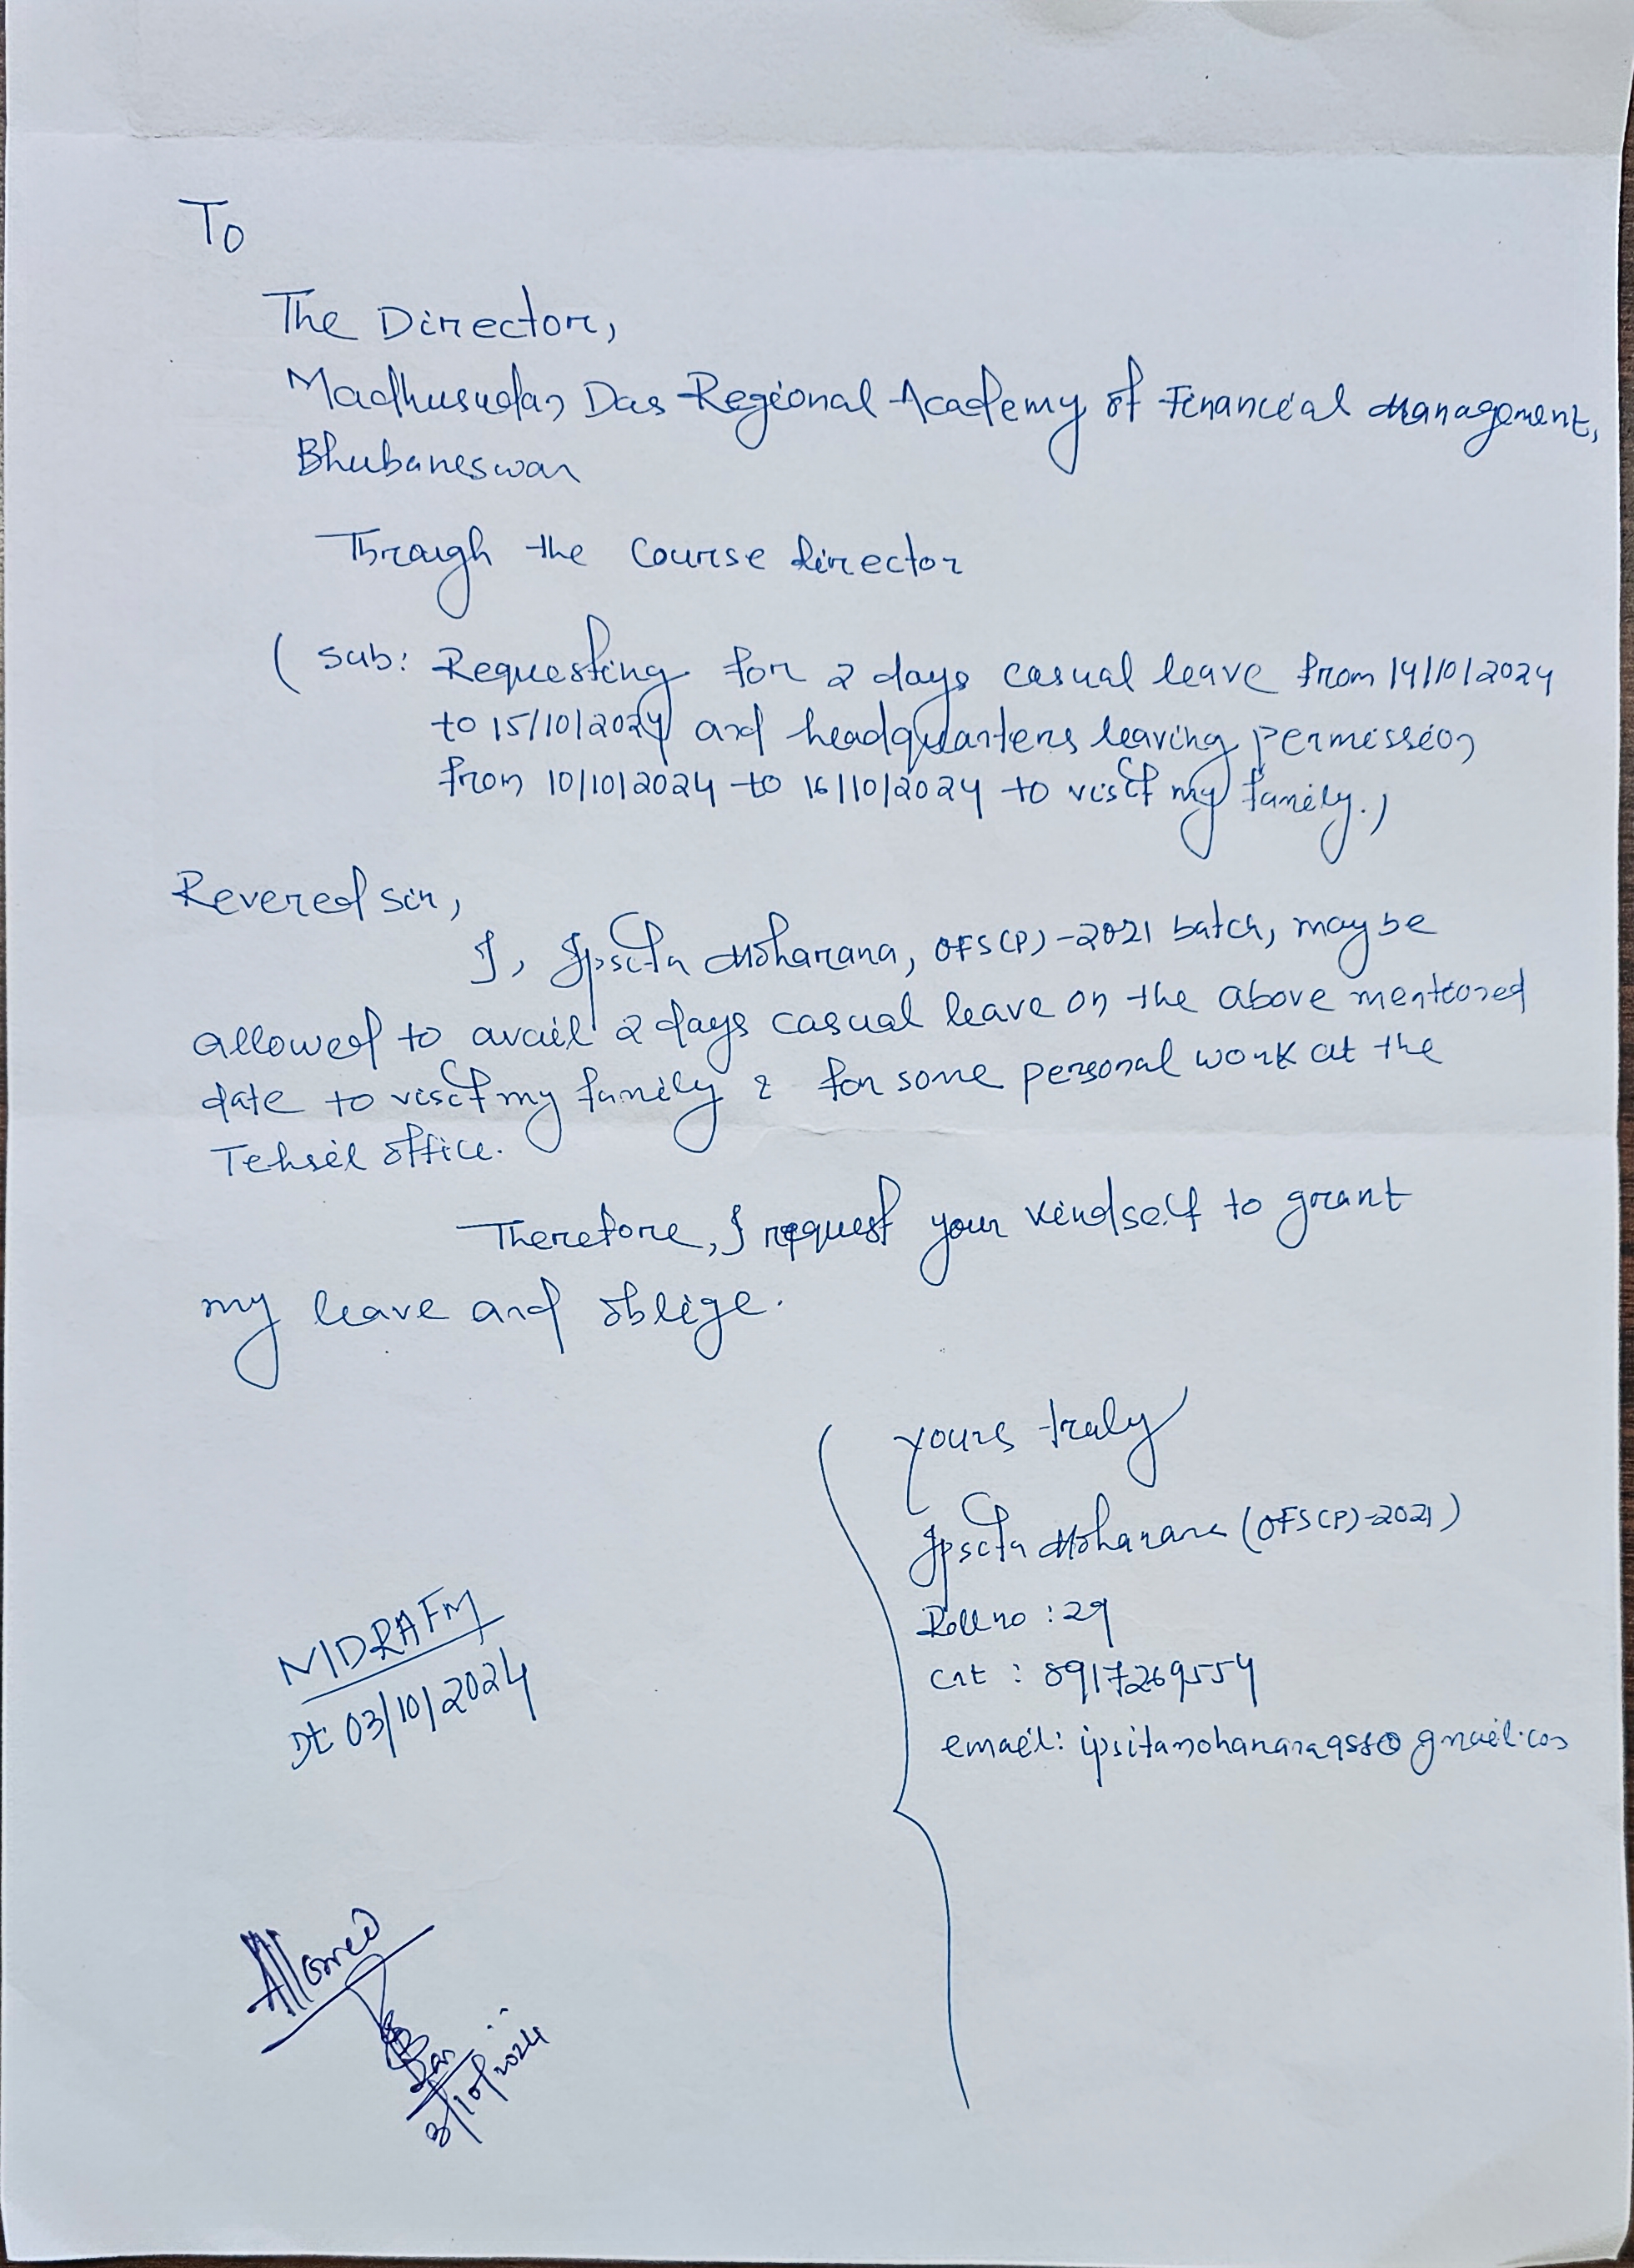 To
The Director,
Madhusudan Das Regional Academy of Financial Management,
Bhubaneswar
Through the Course Director
( Sub: Requesting for 2 days casual leave from 14/10/2024
to 15/10/2024 and headquarters leaving permission
from 10/10/2024 to 16/10/2024 to visit my family.)
Revered sir,
I, Ipsita Moharana, OFS(P)-2021 batch, may be
allowed to avail 2 days casual leave on the above mentioned
date to visit my family & for some personal work at the
Tehsil office.
Therefore, I request your kindself to grant
my leave and oblige.
Yours truly
Ipsita Moharana (OFS(P)-2021)
Roll no : 29
Cnt : 8917269554
email:
MDRAFM
Dt: 03/10/2024
Allowed
3/10/2024